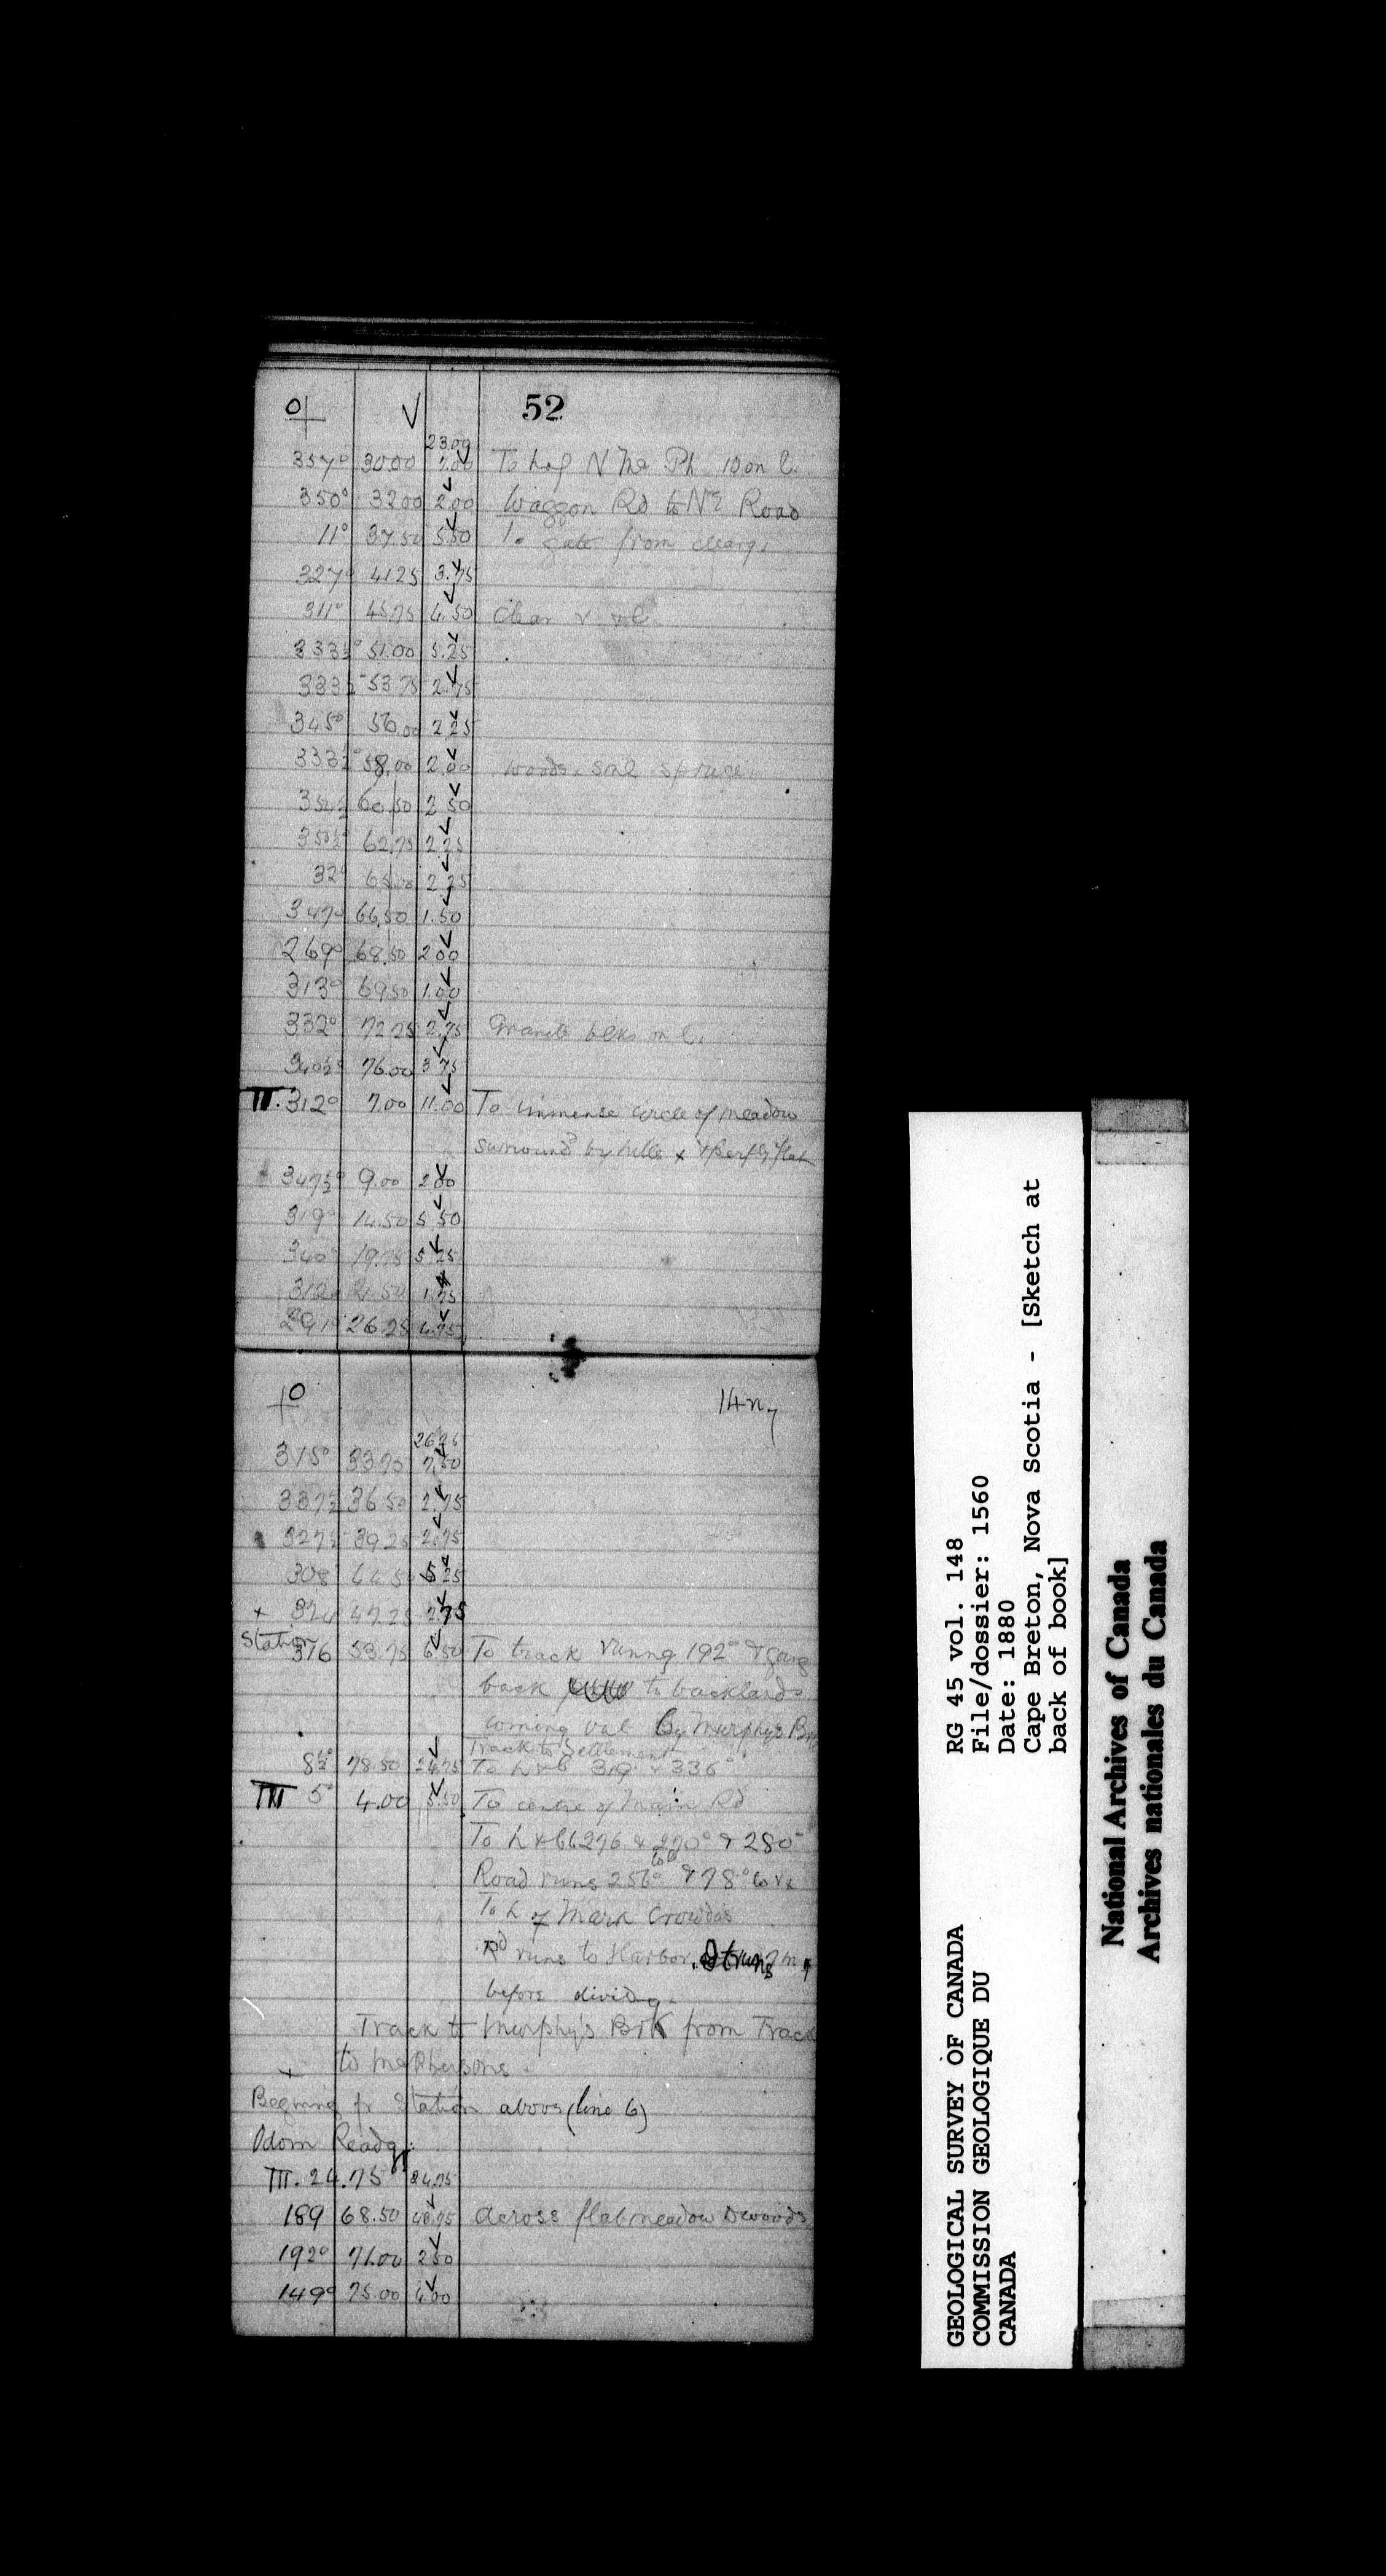 52
23.00
357° 30.00 7.00 To h of N Mc Ph on l.
350° 32.00 2.00 Waggon Rd to Road
11° 37.50 5.50 To gate from clearg.
327° 41.25 3.75
311° 45.75 4.50 Clear
333½° 51.00 5.25
333½° 53.75 2.75
345° 56.00 2.25
333½° 58.00 2.00 woods. spruce
352½ 60.50 2.50
350½° 62.75 2.25
32° 65.00 2.25
347° 66.50 1.50
269° 68.50 2.00
313° 69.50 1.00
332° 72.25 2.75 Granite blks on l.
340½° 76.00 3.75
II. 312° 7.00 11.00 To immense circle of meadow
surround^d by hills & flat
347½° 9.00 2.00
319° 14.50 5.50
340° 19.75 5.25
312° 21.50 1.75
291° 26.25 4.75
14
26.25
315° 33.75 7.50
337½ 36.50 2.75
327½ 39.25 2.75
308° 44.50 5.25
+ 47.25 2.75
Station 53.75 6.50 To track runng 192° & going
back to backlands
coming out by Murphy's
Track to Settlement
8½° 78.50 24.75 To 319° & 336°
III 5° 4.00 5.50 To centre of Main Rd
To h 276 & 270° & 280°
Road runs 256° & 78°
To h of Mark Crowdis
Rd runs to Harbor. & runs
before dividg.
Track to Murphy's Brk from Track
to McPhersons.
+
Beginning fr Station above (line 6)
Odom Readg.
III. 24.75 24.75
189 68.50 43.75 Across flat meadow & woods
192° 71.00 2.50
149° 75.00 4.00
GEOLOGICAL SURVEY OF CANADA
COMMISSION GEOLOGIQUE DU
CANADA
RG 45 vol. 148
File/dossier: 1560
Date: 1880
Cape Breton, Nova Scotia - [Sketch at
back of book]
National Archives of Canada
Archives nationales du Canada